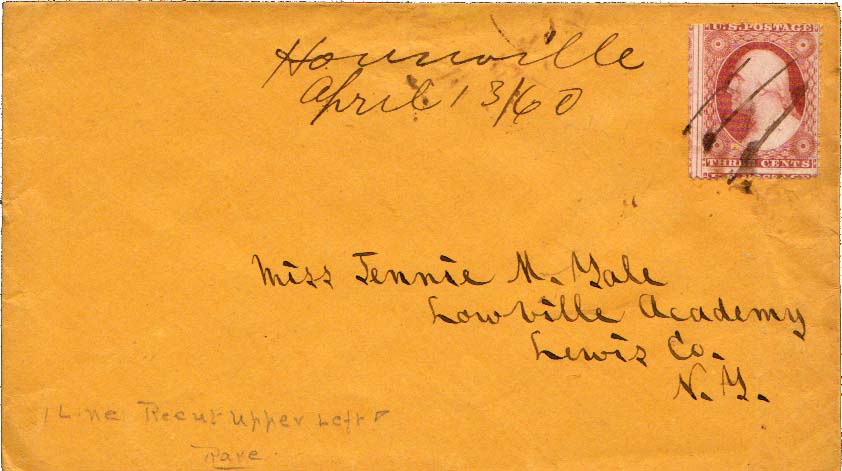 Houseville
April 13/60
U.S. POSTAGE
THREE CENTS
Miss Jennie M. Yale
Lowville Academy
Lewis Co.
N. Y.
1 Line Recut Upper Left
Rare